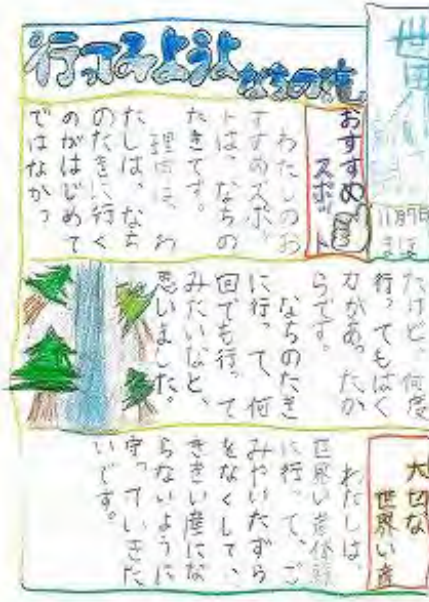 世界
11月7日
行ってみようよ
なちの滝
おすすめ
スポット
わたしのお
すすめスポッ
トは、なちの
たきです。
理由は、わ
たしは、なち
のたきに行く
のがはじめて
ではなか?
たけど、何度
行ってもはく
力があったか
らです。
なちのたき
に行って、何
回でも行って
みたいなと、
思いました。
大切な
世界い産
わたしは、
世界い産体験
に行って、ご
みやいたずら
をなくして、
ききい産にな
らないように
守っていきた
いです。